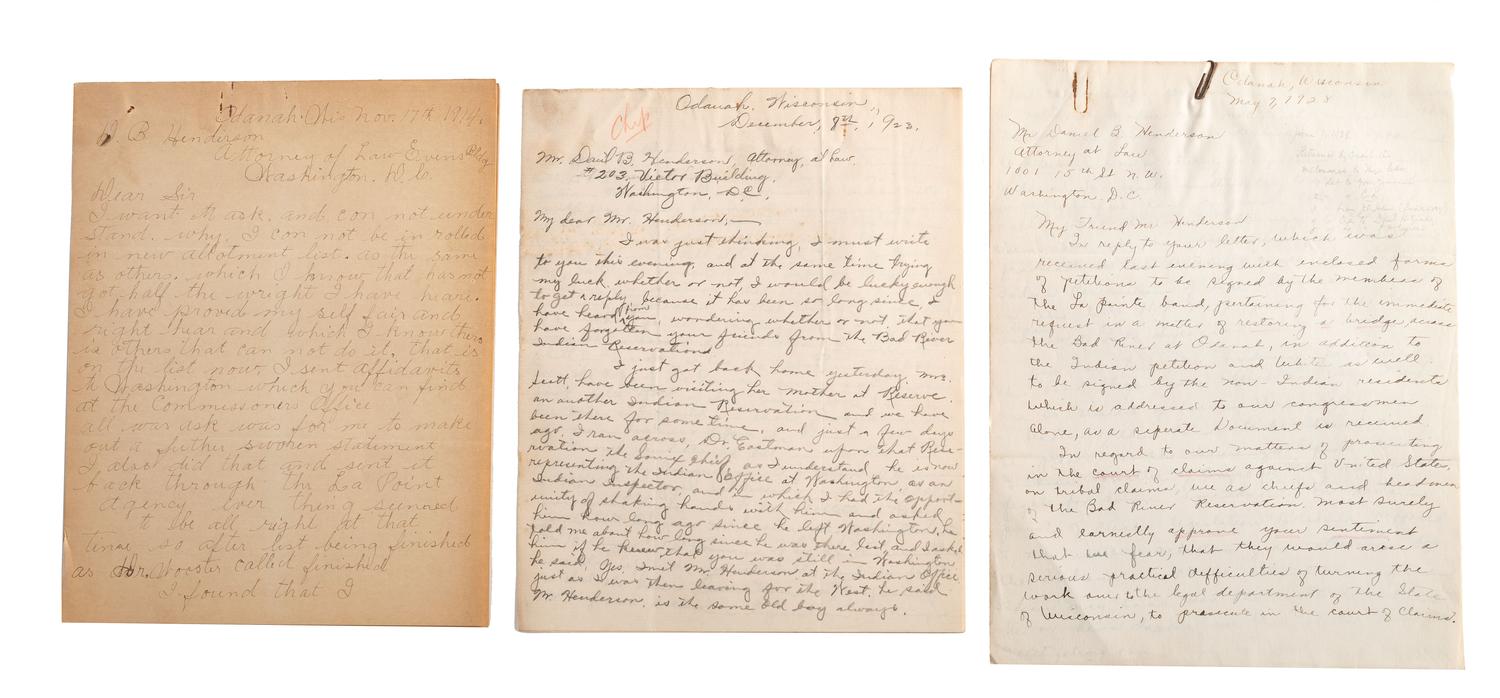 Odanah. Wis Nov. 17th 1914.
D. B Henderson
Attorney of Law Evins Bldg
Washington. D. C.
Dear Sir
I want tt ask. and con not under
stand. why. I con not be in rolled
in new allotment list. as the same
as others. which I know that has not
got half the wright I have heare.
I have provid my self fair and
right hear and which I know thers
is others that can not do it, that is
on the list now, I sent affidavits
to Washington which you can find
at the Commissoners Office
all was ask was for me to make
out a futher sworen statement
I also did that and sent it
back through the La Point
agency. ever thing seemed
t be all right at that
time, so after list being finished
as Mr. Wooster called finished
I found that I
Chip
Odanah. Wisconsin,
December, 8th, 1923.
Mr. Danl B. Henderson, Attorney, at Law.
# 203, Victor Building,
Washington, D.C.,
My dear Mr. Henderson,—
I was just thinking, I must write
to you this evening, and at the same time trying
my luck whether or not, I would be lucky enough
to get a reply, because it has been so long since I
have heard from you, wondering whether or not, that you
have forgotten your friends from the Bad River
Indian Reservations
I just got back home yesterday, Mrs.
Scott, have been visiting her mother at Reserve.
an another Indian Reservation and we have
been there for some time, and just a few days
ago, I ran across, Dr. Eastman upon that Rese-
rvation the Sioux Chief, as I understand, he is now
representing the Indian Office at Washington as an
Indian Inspector, and in which I had the opport-
unity of shaking hands with him and asked
him how long ago since he left Washington, he
told me about how long since he was there last, and I asked
him if he knew that you was still in Washington
he said, Yes, I met Mr. Henderson at the Indian Office
just as I was then leaving for the West, he said
Mr. Henderson, is the same old boy always.
Odanah, Wisconsin
May 7, 1928
Mr Daniel B. Henderson
Attorney at Law
1001 15th St N.W.
Washington D.C.
My Friend Mr Henderson
In reply to your letter, which was
received last evening with enclosed forms
of petitions to be signed by the members of
the La Pointe band, pertaining for the immediate
request in a matter of restoring a bridge, across
the Bad River at Odanah, in addition to
the Indian petition and White is well
to be signed by the non-Indian residents
which is addressed to our congressmen
alone, as a seperate Document is received.
In regard to our matters of prosecuting
in the court of claims against United States,
on tribal claims, we as chiefs and headmen
of the Bad River Reservation. Most surely
and earnestly approve your sentiment
that we fear, that they would arose a
serious practical difficulties of turning the
work over to the legal department of the State
of Wisconsin, to prosecute in the court of Claims.